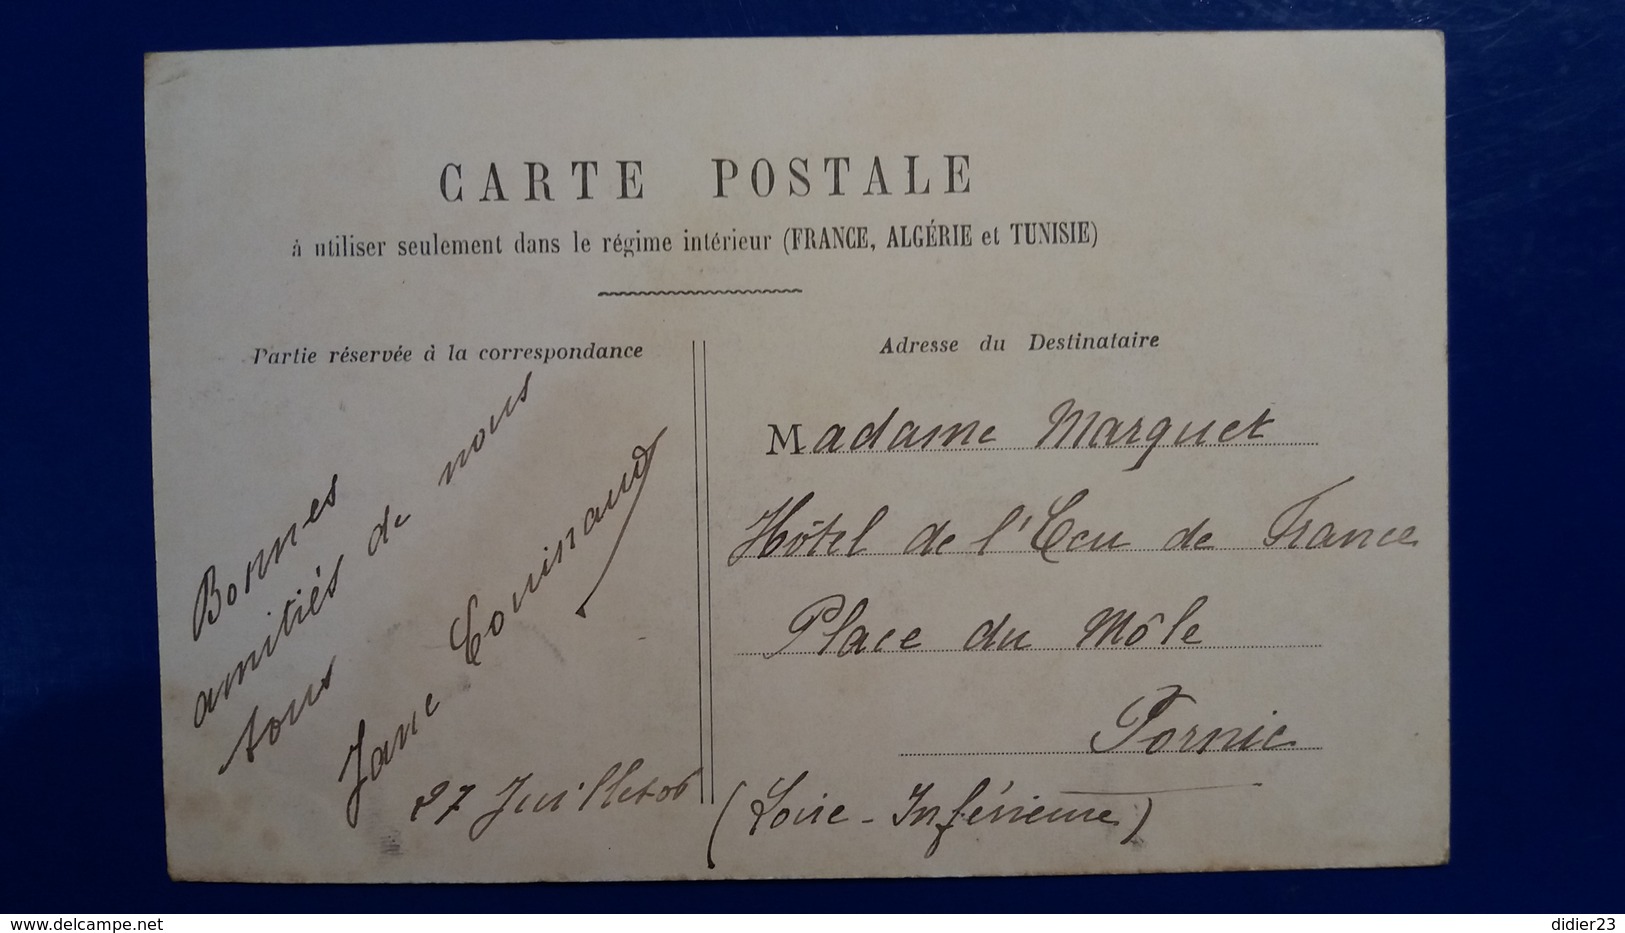 CARTE POSTALE
à utiliser seulement dans le régime intérieur (FRANCE, ALGÉRIE et TUNISIE)
Partie réservée à la correspondance
Bonnes
amitiés de nous
tous
Jane
27 Juillet 06
Adresse du Destinataire
Madame Marquet
Hôtel de l'Ecu de France
Place du Môle
Pornic
(Loire-Inférieure)
delcampe.net
didier23